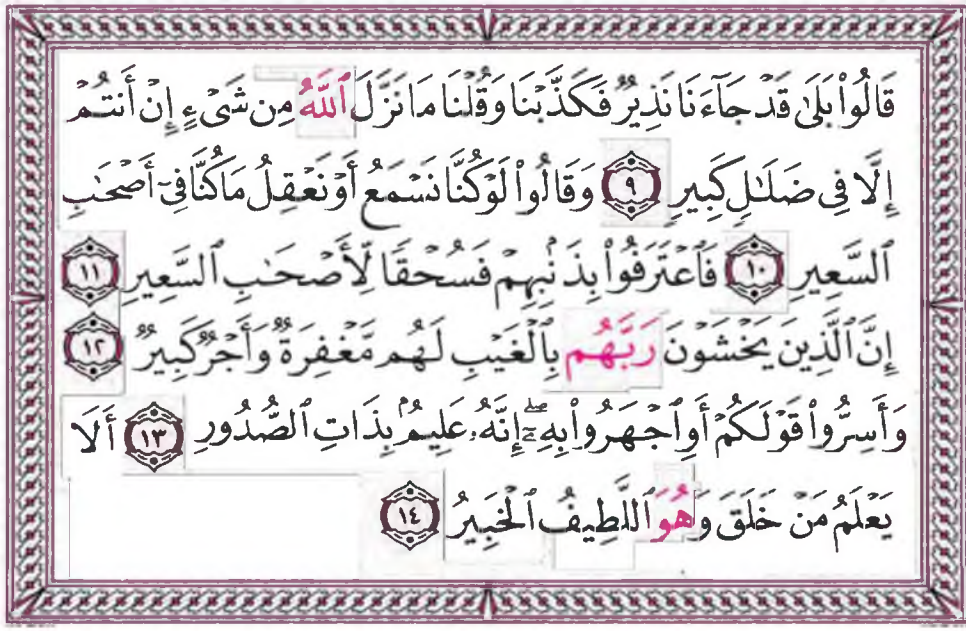 قَالُوا۟ بَلَىٰ قَدْ جَآءَنَا نَذِيرٌ فَكَذَّبْنَا وَقُلْنَا مَا نَزَّلَ ٱللَّهُ مِن شَىْءٍ إِنْ أَنتُمْ
إِلَّا فِى ضَلَـٰلٍ كَبِيرٍ ٩ وَقَالُوا۟ لَوْ كُنَّا نَسْمَعُ أَوْ نَعْقِلُ مَا كُنَّا فِىٓ أَصْحَـٰبِ
ٱلسَّعِيرِ ١٠ فَٱعْتَرَفُوا۟ بِذَنۢبِهِمْ فَسُحْقًا لِّأَصْحَـٰبِ ٱلسَّعِيرِ ١١
إِنَّ ٱلَّذِينَ يَخْشَوْنَ رَبَّهُم بِٱلْغَيْبِ لَهُم مَّغْفِرَةٌ وَأَجْرٌ كَبِيرٌ ١٢
وَأَسِرُّوا۟ قَوْلَكُمْ أَوِ ٱجْهَرُوا۟ بِهِۦٓ ۖ إِنَّهُۥ عَلِيمٌۢ بِذَاتِ ٱلصُّدُورِ ١٣ أَلَا
يَعْلَمُ مَنْ خَلَقَ وَهُوَ ٱللَّطِيفُ ٱلْخَبِيرُ ١٤